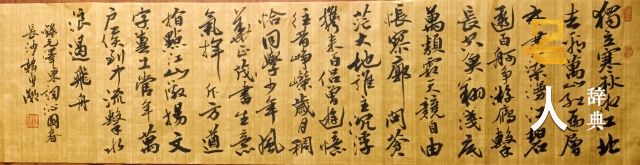 獨立寒秋湘江北
去看萬山紅遍層
林盡染漫江碧
透百舸爭流鷹擊
長空魚翔淺底
萬類霜天競自由
悵寥廓 問蒼
茫大地誰主沉浮
攜來百侶曾遊憶
往昔崢嶸歲月稠
恰同學少年風
華正茂書生意
氣揮斥方遒
指點江山激揚文
字糞土當年萬
戶侯到中流擊水
浪遏飛舟
毛澤東詞沁園春
長沙
人
辞典